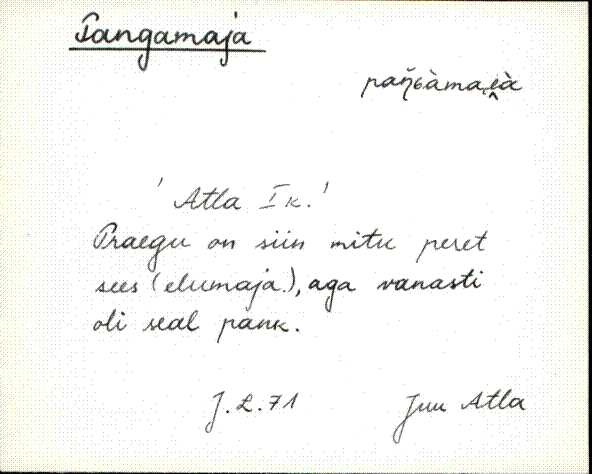 Pangamaja
pañɢàmai̯à
'Atla Ik.'
Praegu on siin mitu peret
sees (elumaja), aga vanasti
oli seal pank.
J. L. 71 Juu Atla